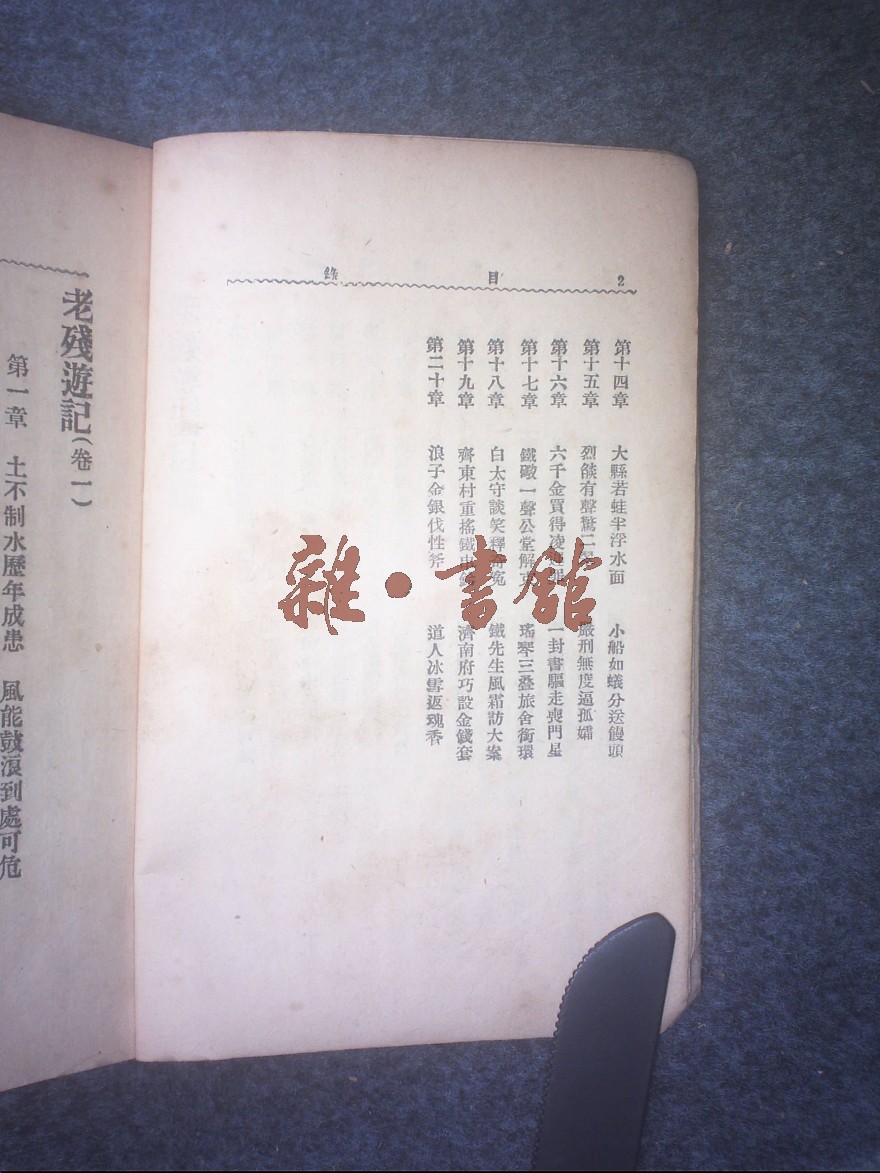 目 錄 2
第十四章 大縣若蛙半浮水面 小船如蟻分送饅頭
第十五章 烈燄有聲驚二 嚴刑無度逼孤孀
第十六章 六千金買得凌 一封書驅走喪門星
第十七章 鐵礮一聲公堂解 瑤琴三叠旅舍銜環
第十八章 白太守談笑釋 冤 鐵先生風霜訪大案
第十九章 齊東村重搖鐵串 濟南府巧設金錢套
第二十章 浪子金銀伐性斧 道人冰雪返魂香
老殘遊記(卷一)
第一章 土不制水歷年成患 風能鼓浪到處可危
雜·書館